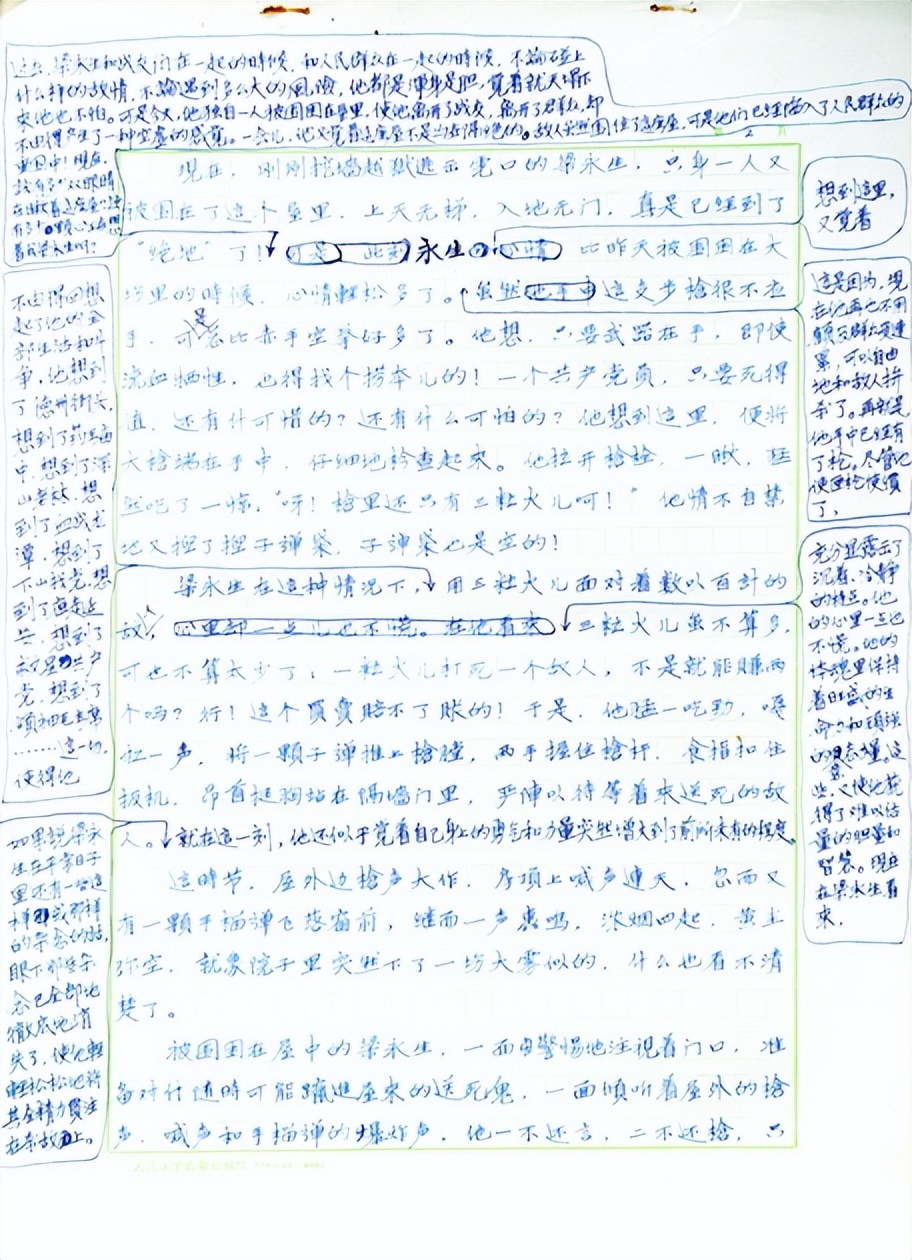 过去,梁永生和战友们在一起的時候,和人民群众在一起的時候,不論碰上
什么样的敌情,不論遇到多么大的風险,他都是渾身是胆,覚着就天塌下
来他也不怕。可是今天,他独自一人被围困在屋里,使他离开了战友,离开了群众,却
不由得产生了一种空虚的感覚。一会儿,他又覚着这座屋不是
敌人虽然围住了这座屋,可是他们已经陷入了人民群众的
重围中!現在,
該有多少双眼睛
在瞅着这座屋
有多少
着我梁永生呵?
現在,刚刚挖墙越狱逃出虎口的梁永生,只身一人又
被困在了这个屋里,上天无梯,入地无门,真是已经到了
“绝地”了!可是,此刻永生的心情,比昨天被围困在大
坊里的時候,心情輕松多了。虽然他手中这支步槍很不应
手,可是总比赤手空拳好多了。他想,只要武器在手,即使
流血牺牲,也得找个捞本儿的!一个共产党员,只要死得
值,还有什可惜的?还有什么可怕的?他想到这里,便将
大槍端在手中,仔细地检查起来。他拉开槍栓,一瞅,猛
然吃了一惊:“呀!槍里还只有三粒火儿呵!”他情不自禁
地又摸了摸子弹袋,子弹袋也是空的!
梁永生在这种情况下,用三粒火儿面对着数以百計的
敌人,心里却一点儿也不慌。在他看来,三粒火儿虽不算多,
可也不算太少了;一粒火儿打死一个敌人,不是就能賺两
个吗?行!这个買賣賠不了賬的!于是,他猛一吃劲,嘎
缸一声,将一顆子弹推上槍膛,两手握住槍杆,食指扣住
扳机,昂首挺胸站在隔墙门里,严陣以待等着来送死的敌
人。就在這一刻,他还似乎覚着自己身上的勇气和力量突然增大到了前所未有的程度。
这時节,屋外边槍声大作,房頂上喊声連天,忽而又
有一顆手榴弹飞落窗前,继而一声轟鳴,浓烟四起,黄土
弥空,就象院子里突然下了一场大雾似的,什么也看不清
楚了。
被围困在屋中的梁永生,一面警惕地注視着门口,准
备对付随時可能蹿進屋来的送死鬼,一面傾听着屋外的槍
声、喊声和手榴弹的爆炸声,他一不还言,二不还槍,只
不由得回想
起了他的全
部生活和斗
争,他想到
了德州街头,
想到了药王庙
中,想到了深
山老林,想
到了血战龙
潭,想到了
下山找党,想
到了
想到了
共产
党,想到了
領袖毛主席
……这一切,
使得他
如果説梁永
生在平常日子
里还有一些这
样或那样
的杂念的話,
眼下那些杂
念已全部地
徹底地消
失了,使他輕
輕松松地将
其全精力貫注
在杀敌上。
想到這里,
又覚着
这是因为,現
在他再也不用
顾忌群众受連
累,可以自由
地和敌人拼
杀了。再就是
他手中已经有
了枪。尽管他
使匣枪使慣
了,
充分显露示了
沉着、冷靜
的特点。他
的心里一点也
不慌。他的
体魂里保持
着旺盛的生
命力和頑强
的意志。这
些,又使他获
得了难以估
量的胆量和
智慧。現在
在梁永生看
来,